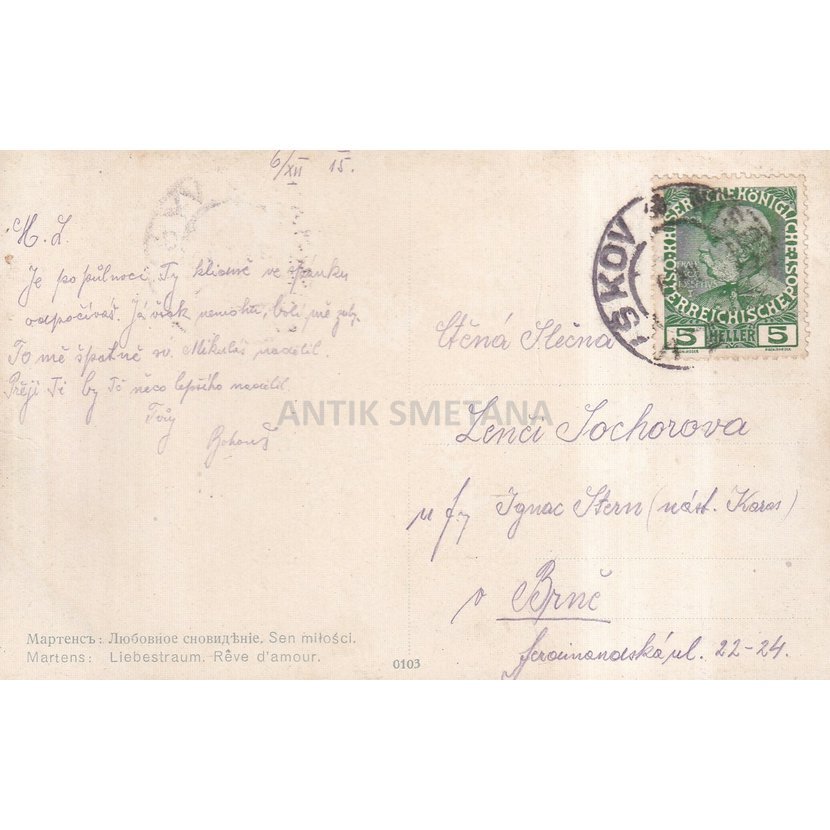 6/XII 15.
M. L.
Je po půlnoci, Ty klidně ve spánku
odpočíváš. Já však nemohu, bolí mě zuby.
To mě špatně sv. Mikuláš nadělil
Přeji Ti by Ti něco lepšího nadělil
Tvůj
Bohouš
Ctěná Slečna
Lenči Sochorova
u f.y Ignac Stern (nást. Karas)
v Brně
Ferdinandská ul. 22-24.
ŠKOV
KAISERL KÖNIGLICHE
ÖSTERREICHISCHE POST
5 HELLER 5
ANTIK SMETANA
Мартенсъ: Любовное сновидѣніе. Sen miłości.
Martens: Liebestraum. Rêve d'amour.
0103